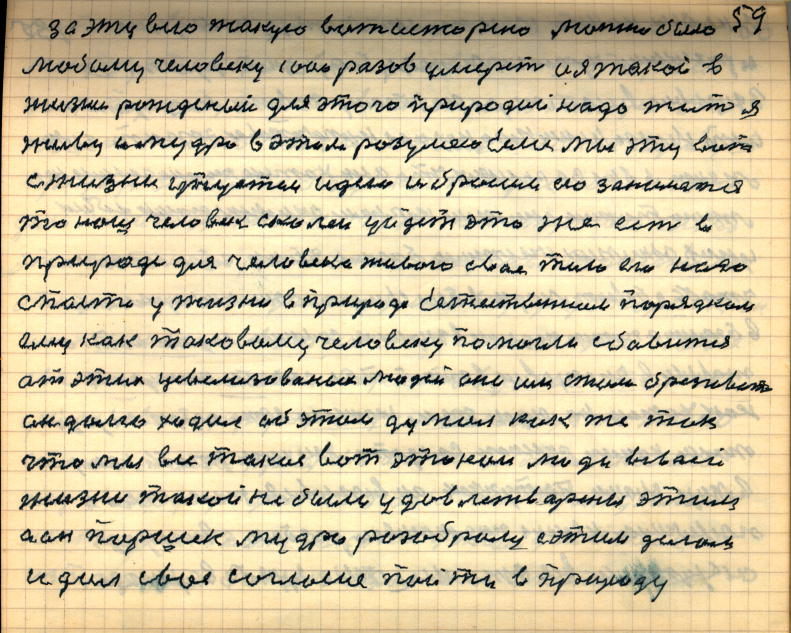 за эту всю такую вот историю можно было 59
любому человеку 1000 разов умереть и я такой в
жизни рожденый для этого природой надо жить я
живу и мудро в этом розумею если мы эту вот
с жизни упустим идею и бросим ею заниматся
то наш человек сколеи уйдеть это же есть в
природе для человека живого свае тило его надо
спасти у жизни в природе естественым порядком
ему как таковому человеку помогли сбавится
ат этих цевелизованых людей они им стали брезиват
он долго ходил об этом думал как же так
что мы все такие вот этаким люди в своей
жизни такой не были удовлетварены этим
а он поршек мудро розобралу с этим делом
и дал свое согласие пойти в природу